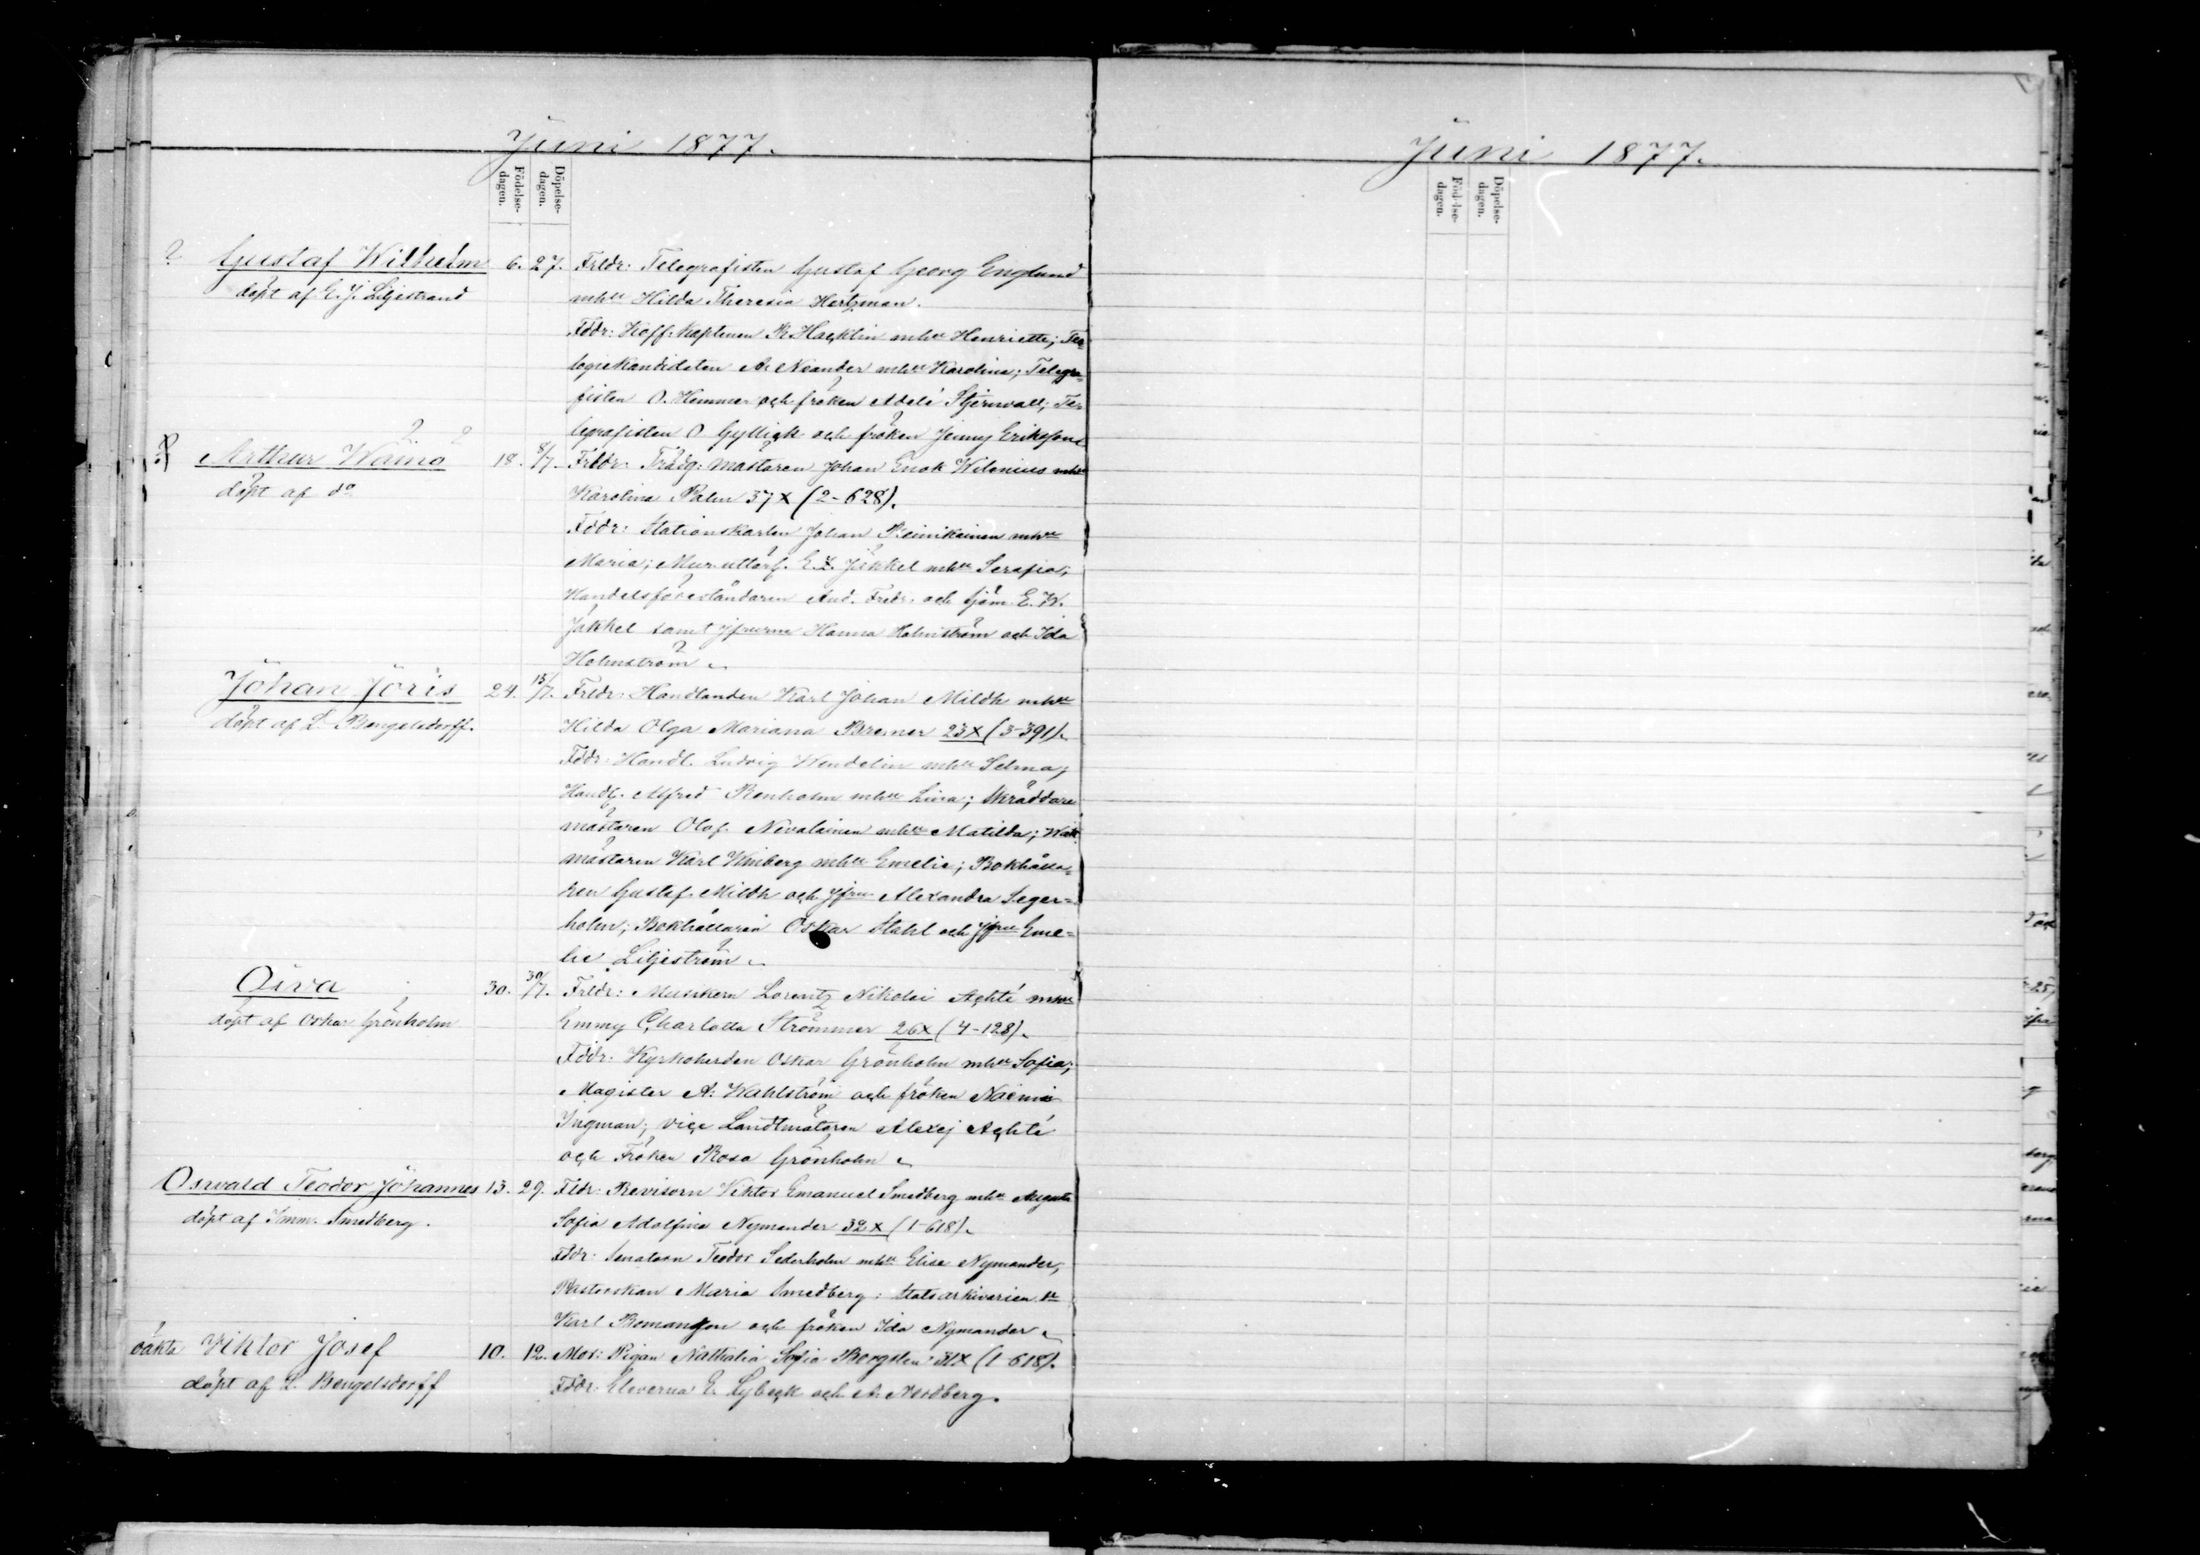 Juni 1877.
Födelse-
dagen.
Döpelse-
dagen.
? Gustaf Wilhelm 6. 27. Frldr: Telegrafisten Gustaf Georg Englund
döpt af E. J. Liljestrand mhu Hilda Theresia Hertzman.
Fddr: Koff. Kaptenen R. Hacklin mhu Henriette; Teo-
logiekandidaten A. Neander mhu Karolina; Telegra-
fisten O. Hemmer och fröken Adelé Stjernvall; Te-
legrafisten O Gyllick och fröken Jenny Eriksson
Arthur Wäinö 18. 8/7. Frldr: Trädg: mästaren Johan Enok Wilenius mhu
döpt af do Karolina Palm 37x (2-628).
Fddr: Stationskarlen Johan Reinikainen mhu
Maria; Mur. uttarf. E. Jäkkel mhu Serafia;
Handelsföreståndaren And. Fredr. och sjöm. E. W.
Jäkkel samt jfrurna Hanna Holmström och Ida
Holmström.
Johan Joris 24. 15/7. Frldr: Handlanden Karl Johan Mildh mhu
döpt af L. Bengelsdorff. Hilda Olga Mariana Bremer 23x (3-391).
Fddr: Handl. Ludvig Wendelin mhu Selma;
Handl. Alfred Renholm mhu Lina; Skräddare
mästaren Olof Nevalainen mhu Matilda; Wakt
mästaren Karl Winberg mhu Emelie; Bokhålla-
ren Gustaf Mildh och Jfru Alexandra Seger-
holm; Bokhållaren Oskar Stahl och Jfru Eme-
lie Liljeström.
Oiva 30. 30/7. Frldr: Musikern Lorentz Nikolai Achté mhu
döpt af Oskar Grönholm Emmy Charlotta Strömmer 26x (4-128).
Fddr: Kyrkoherden Oskar Grönholm mhu Sofia;
Magister A. Wahlström och fröken Naëmi
Ingman; vice Landtmätaren Alexej Achté
och Fröken Rosa Grönholm.
Oswald Teodor Johannes 13. 29. Fldr: Revisorn Viktor Emanuel Smedberg mhu Augusta
döpt af Imm. Smedberg. Sofia Adolfina Nymander 32x (1-618).
Fddr: Senatorn Teodor Sederholm mhu Elise Nymander;
Pastorskan Maria Smedberg; Statsarkivarien
Karl Bomansson och fröken Ida Nymander.
oäkta Viktor Josef 10. 12. Mor: Pigan Nathalia Sofia Bergsten 31x (1-618).
döpt af L. Bengelsdorff Fddr: Eleverna E. Lybeck och A. Nordberg.
Juni 1877.
Födelse-
dagen.
Döpelse-
dagen.